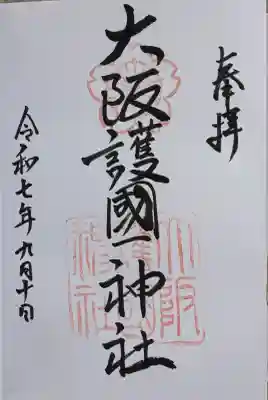 奉拝
大阪護國神社
令和七年九月十日